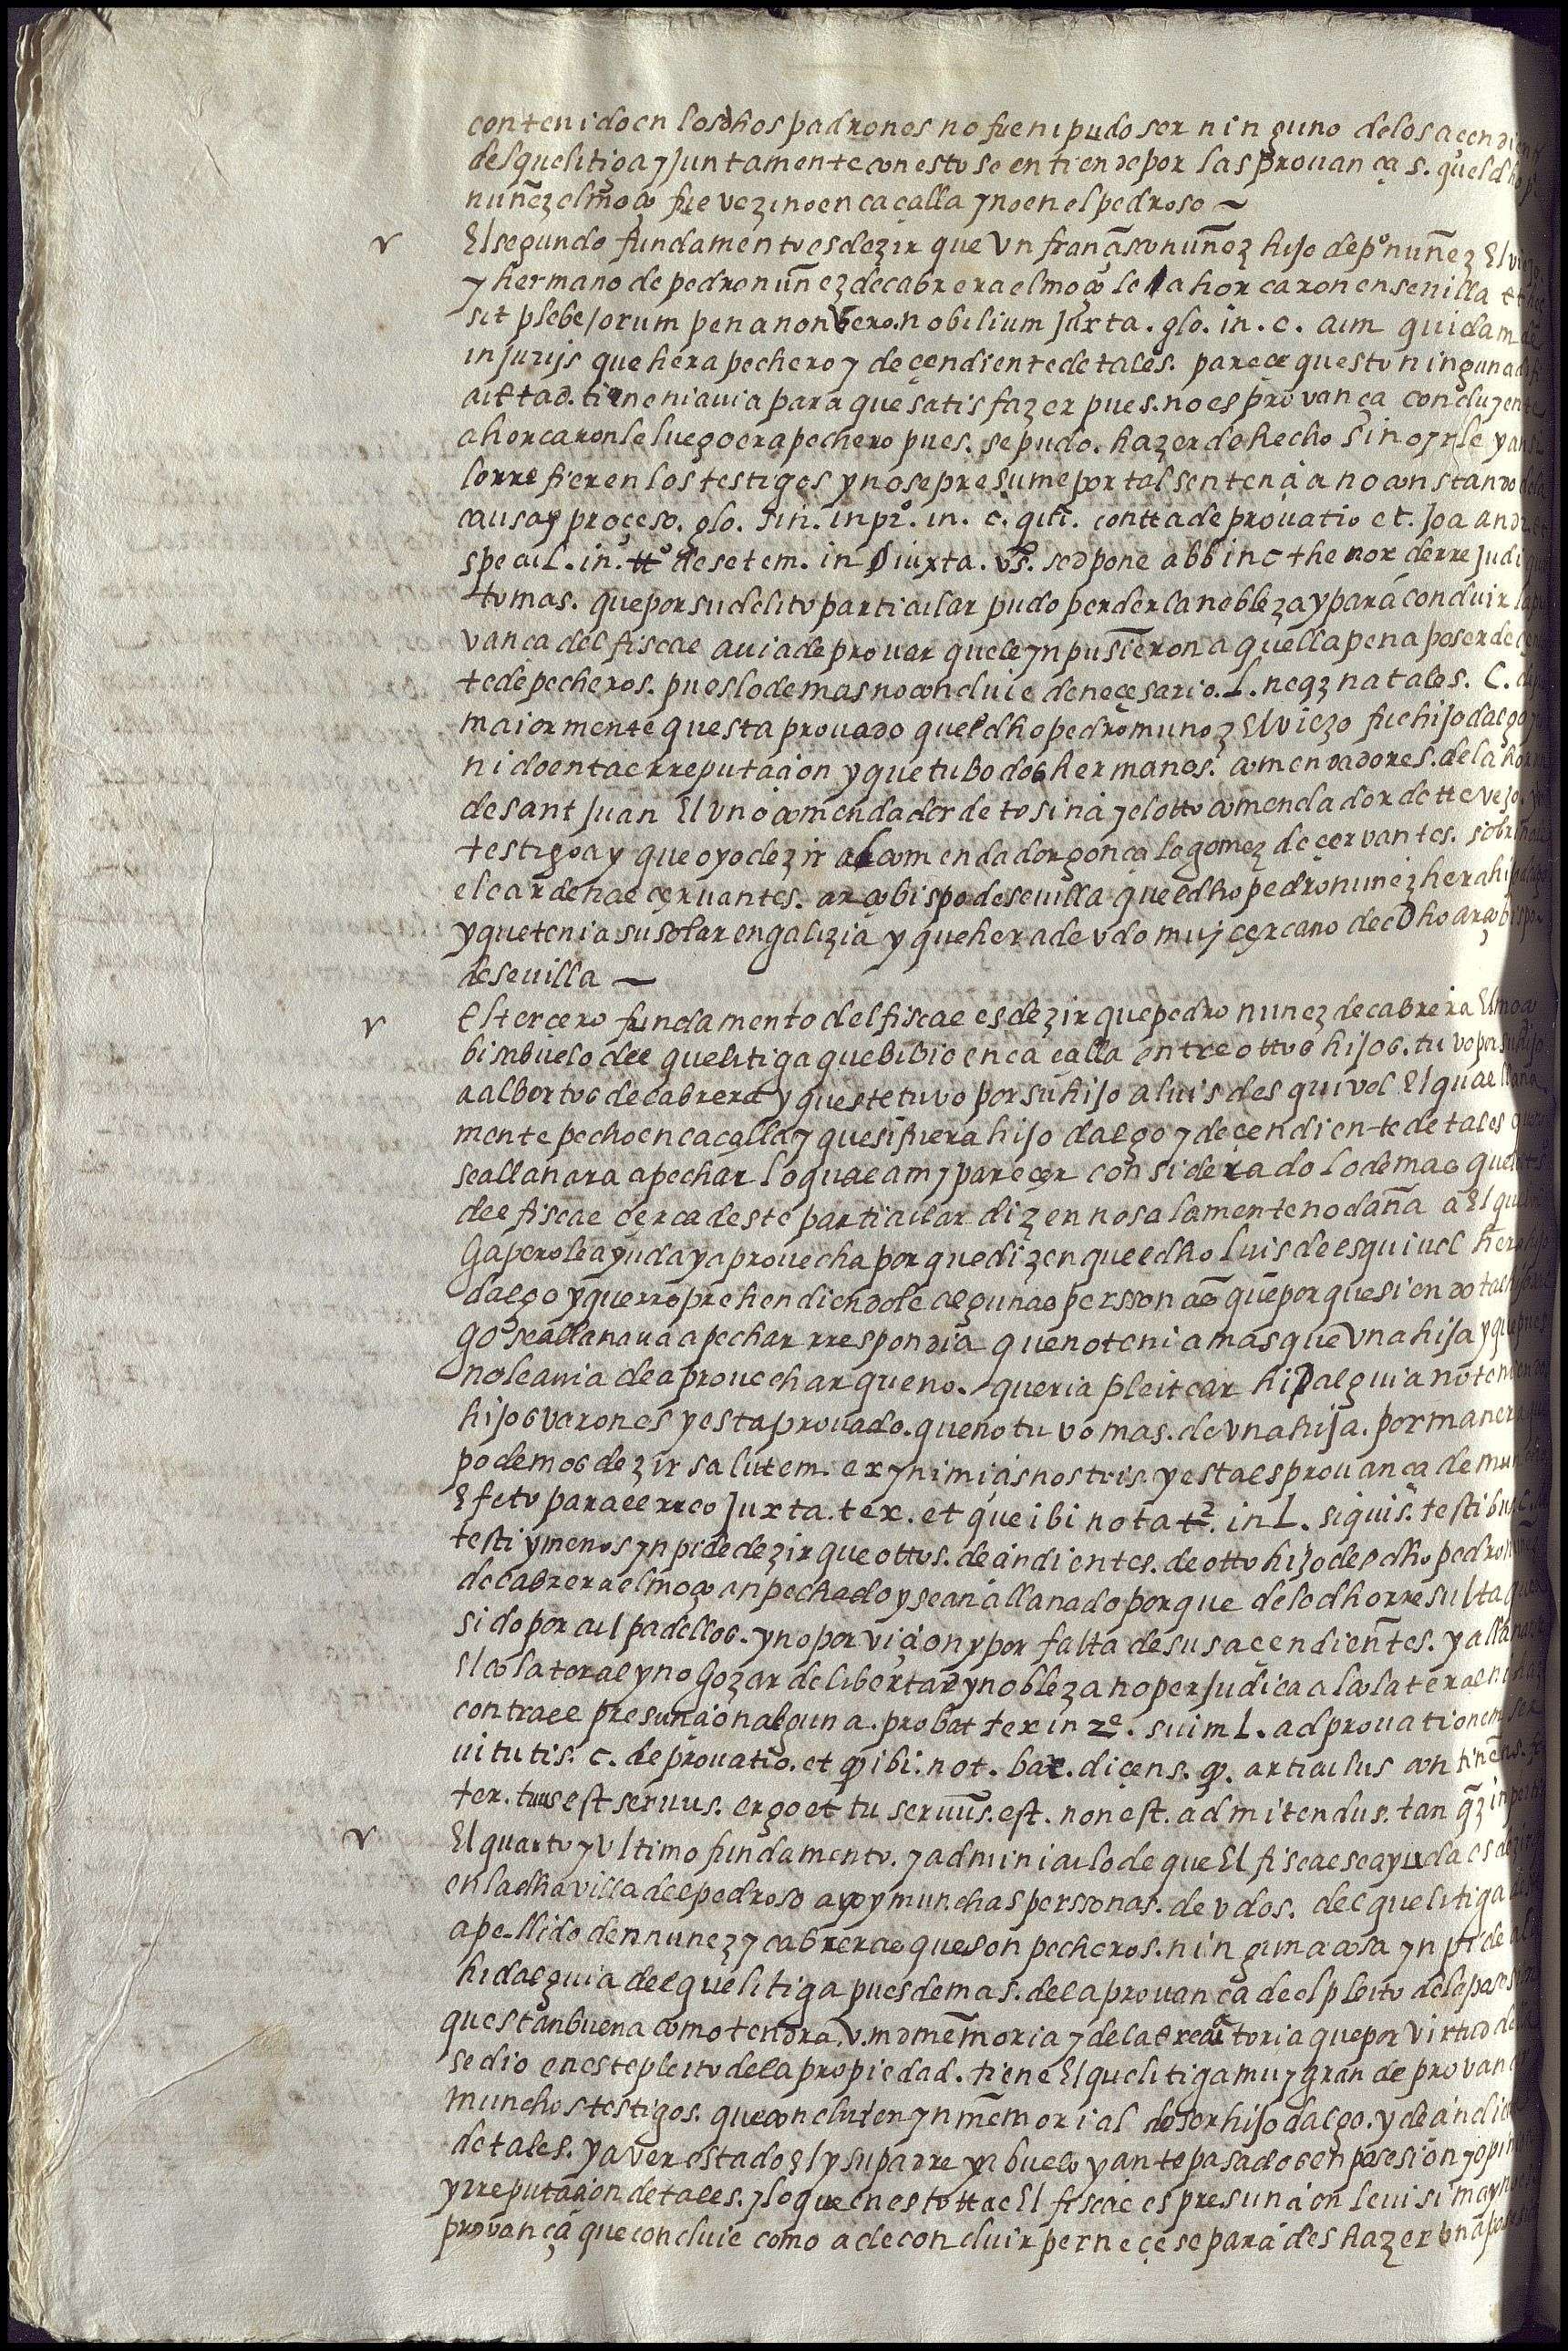 contenido en los dhos padrones no fue ni pudo ser ninguno de los açendient
del que litiga y juntamente con esto se entiende por las provanças. quel dho p.
nuñez el moço fue vezino en caçalla y no en el pedroso ~
v El segundo fundamento es dezir que un françisco nuñez hijo de p.º nuñez El viejo.
y hermano de pedro nuñez de cabrera el moço le ahorcaron en sevilla et
sit plebejorum pena non vero. nobilium juxta. glo. in. c. cum quidam de
injurijs que hera pechero y deçendiente de tales. pareçe questo ninguna difi
cultad. tiene ni avia para que satisfazer pues. no es provança concluyente
ahorcaronle luego era pechero pues. se pudo. hazer de hecho sin oyrle y ansi
lo rrefieren los testigos y no se presume por tal sentençia no constando de la
causa y proçeso. glo. sin. in pr.º in. c. qui. contra de provatio et. joa andr.
specul. in. tt.º de setem. in § iuxta. vs. sed pone abb in c thenor de rre judi
to mas. que por su delito particular pudo perder la nobleza y para concluir la pro
vança del fiscal avia de provar que le ynpusieron aquella pena po ser deçen
te de pecheros. pues lo demas no concluie de neçesario. L. neqz natales. C. de
maiormente questa provado quel dho pedro munoz El viejo fue hijodalgo y
nido en tal rreputaçion y que tubo dos hermanos. comendadores. de la horden
de sant Juan El uno comendador de tosina y el otro comendador de trevejo. y
testigo ay que oyo dezir al comendador gonçalo gomez de çervantes. sobrino
el cardenal çervantes. arçobispo de sevilla quel dho pedro nunez hera hijodalgo
y que tenia su solar en galizia y que hera deudo muj çercano del dho arçobispo
de sevilla ~
v El terçero fundamento del fiscal es dezir que pedro nunez de cabrera El moço
bisabuelo del que litiga que bibio en caçalla entre otros hijos. tuvo por su hijo
a albertos de cabrera y queste tuvo por su hijo a luis desquivel El qual llana
mente pecho en caçalla y que si fuera hijo dalgo y deçendiente de tales que no
se allanara a pechar lo qual a my pareçer considerado lo demas que los ts
del fiscal çerca deste particular dizen no solamente no daña a El que liti
ga pero le ayuda y aprovecha por que dizen quel dho luis de esquivel hera hijo
dalgo y que rreprehendiendole algunas personas que por que siendo tal hijodal
go se allanava a pechar rrespondia que no tenia mas que una hija y que pues
no le avia de aprovechar que no. queria pleitear hidalguia no teniendo
hijos varones y esta provado. que no tuvo mas. de una hija. por manera que
podemos dezir salutem. ex ynimicis nostris. y esta es provança de mun
Efeto para el rreo juxta. tex. et que ibi nota t.2. in L. si quis. testibus. C. de
testi y menos ynpide dezir que otros. deçindientes. de otro hijo del dho pedro nun
de cabrera el moço an pechado y se an allanado porque de lo dho rresulta que
sido por culpa dellos. y no por viçion y por falta de sus açendientes. y allanarse
El colateral y no gozar de libertad y nobleza no perjudica al colateral ni
contrael presunçion alguna. probat tex in 2.º sui in L. ad provationem ser
vitutis. c. de provatio. et qd ibi. not. bal. diçens. qd. articulus continens. fra
ter. tuus est servus. ergo et tu servus. est. non est. admitendus. tanqz inperti
v El quarto y ultimo fundamento. y adminiculo de que El fiscal se ayuda es dezir
en la dha villa del pedroso a y oy munchas personas. deudos. del que litiga
apellido den nunez y cabreras que son pecheros. ninguna cosa ynpide a la
hidalguia del que litiga pues demas. de la provança del pleito de la posesion
ques tan buena como tendra v. md memoria y de la executoria que por virtud de
se dio en este pleito de la propiedad. tiene El que litiga muy gran de provança
munchos testigos. que concluien yn memorial de ser hijodalgo. y deçindiente
de tales. y aver estado El y su padre y abuelo y antepasados en posesion y opinion
y rreputaçion de tales. y lo que en esto trae El fiscal es presunçion levisima y no
provança que concluie como a de concluir per neçese para deshazer una posesion